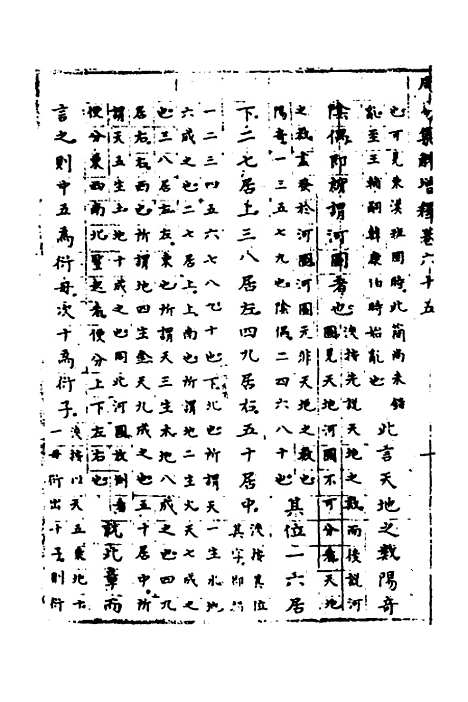 周易集解增釋卷六十五 一
也可見東漢桓 時此簡尚未錯
能至王輔嗣韓康伯時始亂也
此言天地之數陽奇
陰偶即所謂河圖者也
浚按先說天地之數而後說河
圖見天地河圖不可分 天地
之數 於河圖河圖元非天地之數也
陽奇一三五七九也陰偶二四六八十也
其位一六居
下二七居上三八居左四九居右五十居中
浚按其位
其字即指
一二三四五六七八九十也下北也所謂天一生水地
六成之也二七居上上南也所謂地二生火天七成之
也三八居左左東也所謂天三生木地八成之也四九
居右右西也所謂地四生金天九成之也五十居中所
謂天五生土地十成之也因此河圖故則者
便分東西南北 者便分上下左右也
就此章而
言之則中五為衍母次十為衍子
浚按以天五乘地十
一母衍出十子則衍